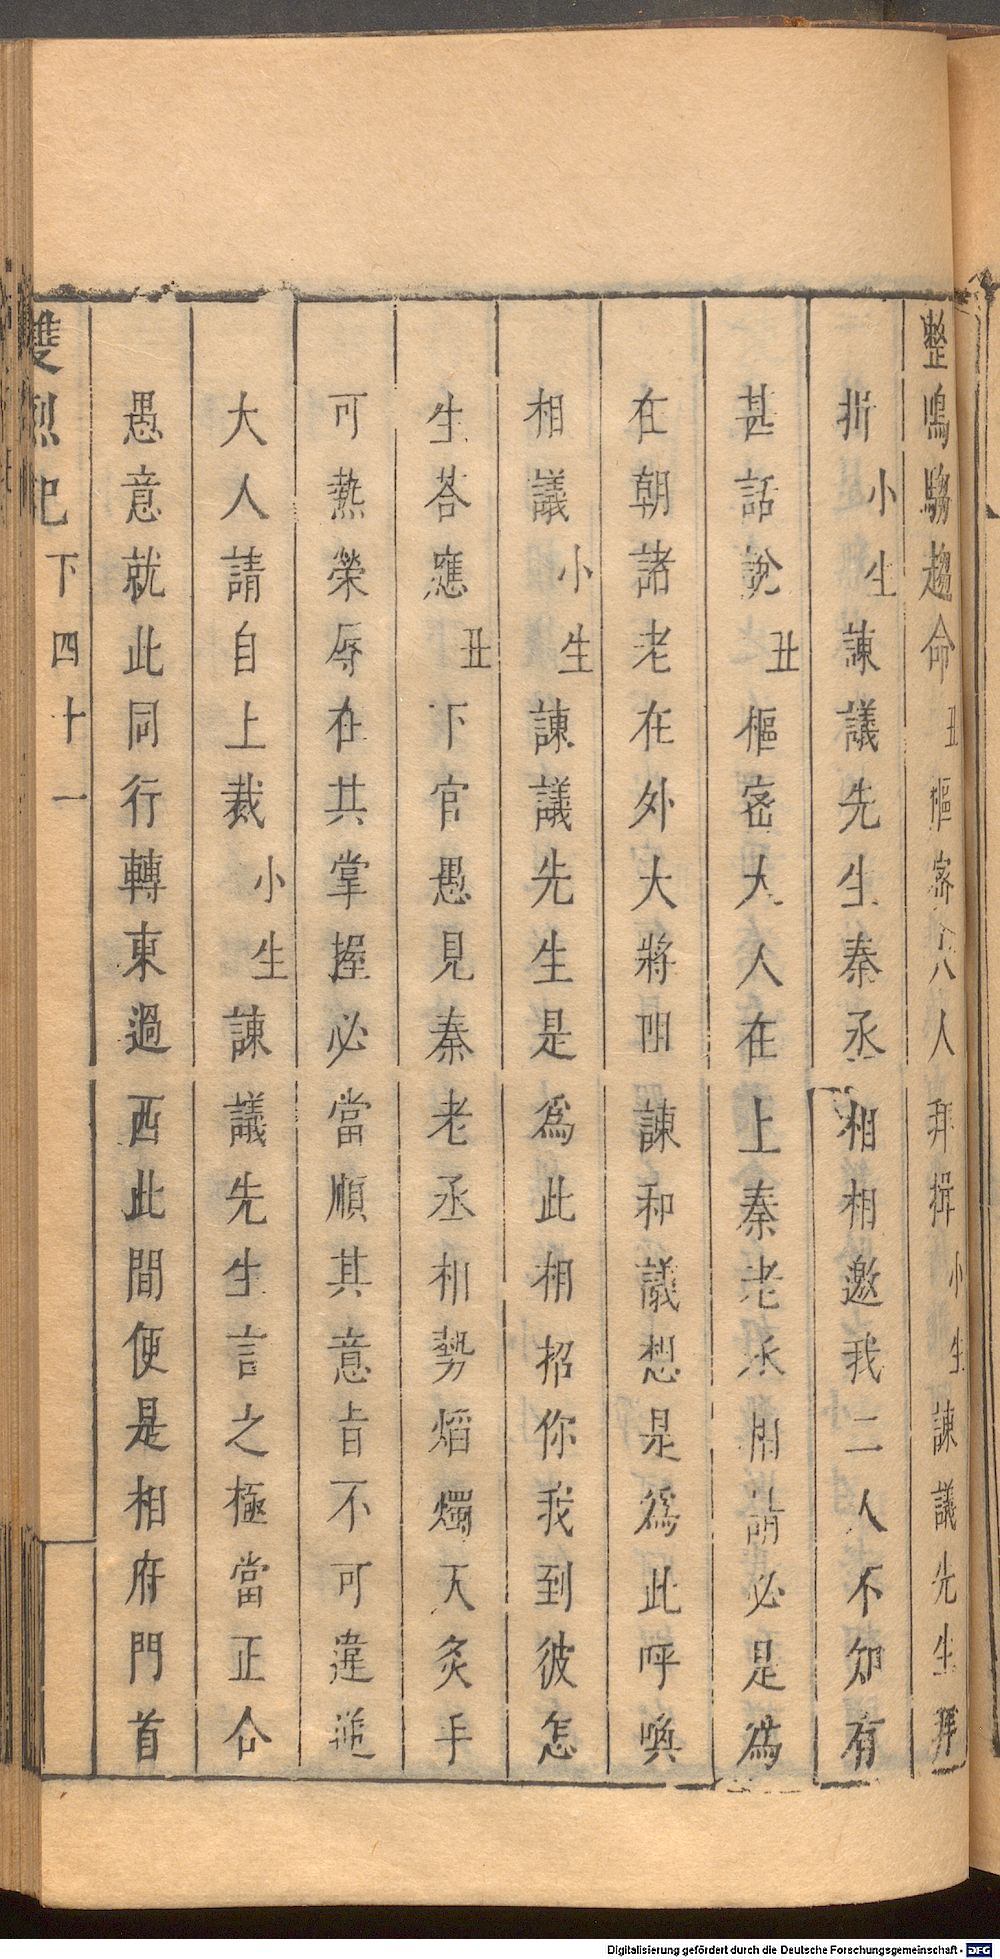 整鳴騶趨命丑樞密大人拜揖小生諫議先生拜
揖小生諫議先生秦丞相相邀我二人不知有
甚話說丑樞密大人在上秦老丞相請必是為
在朝諸老在外大將阻諫和議想是為此呼喚
相議小生諫議先生是為此相招你我到彼怎
生荅應丑下官愚見秦老丞相勢焰燭天炙手
可熱榮辱在其掌握必當順其意旨不可違逆
大人請自上裁小生諫議先生言之極當正合
愚意就此同行轉東過西此間便是相府門首
雙烈記 下 四十一
Digitalisierung gefördert durch die Deutsche Forschungsgemeinschaft - DFG